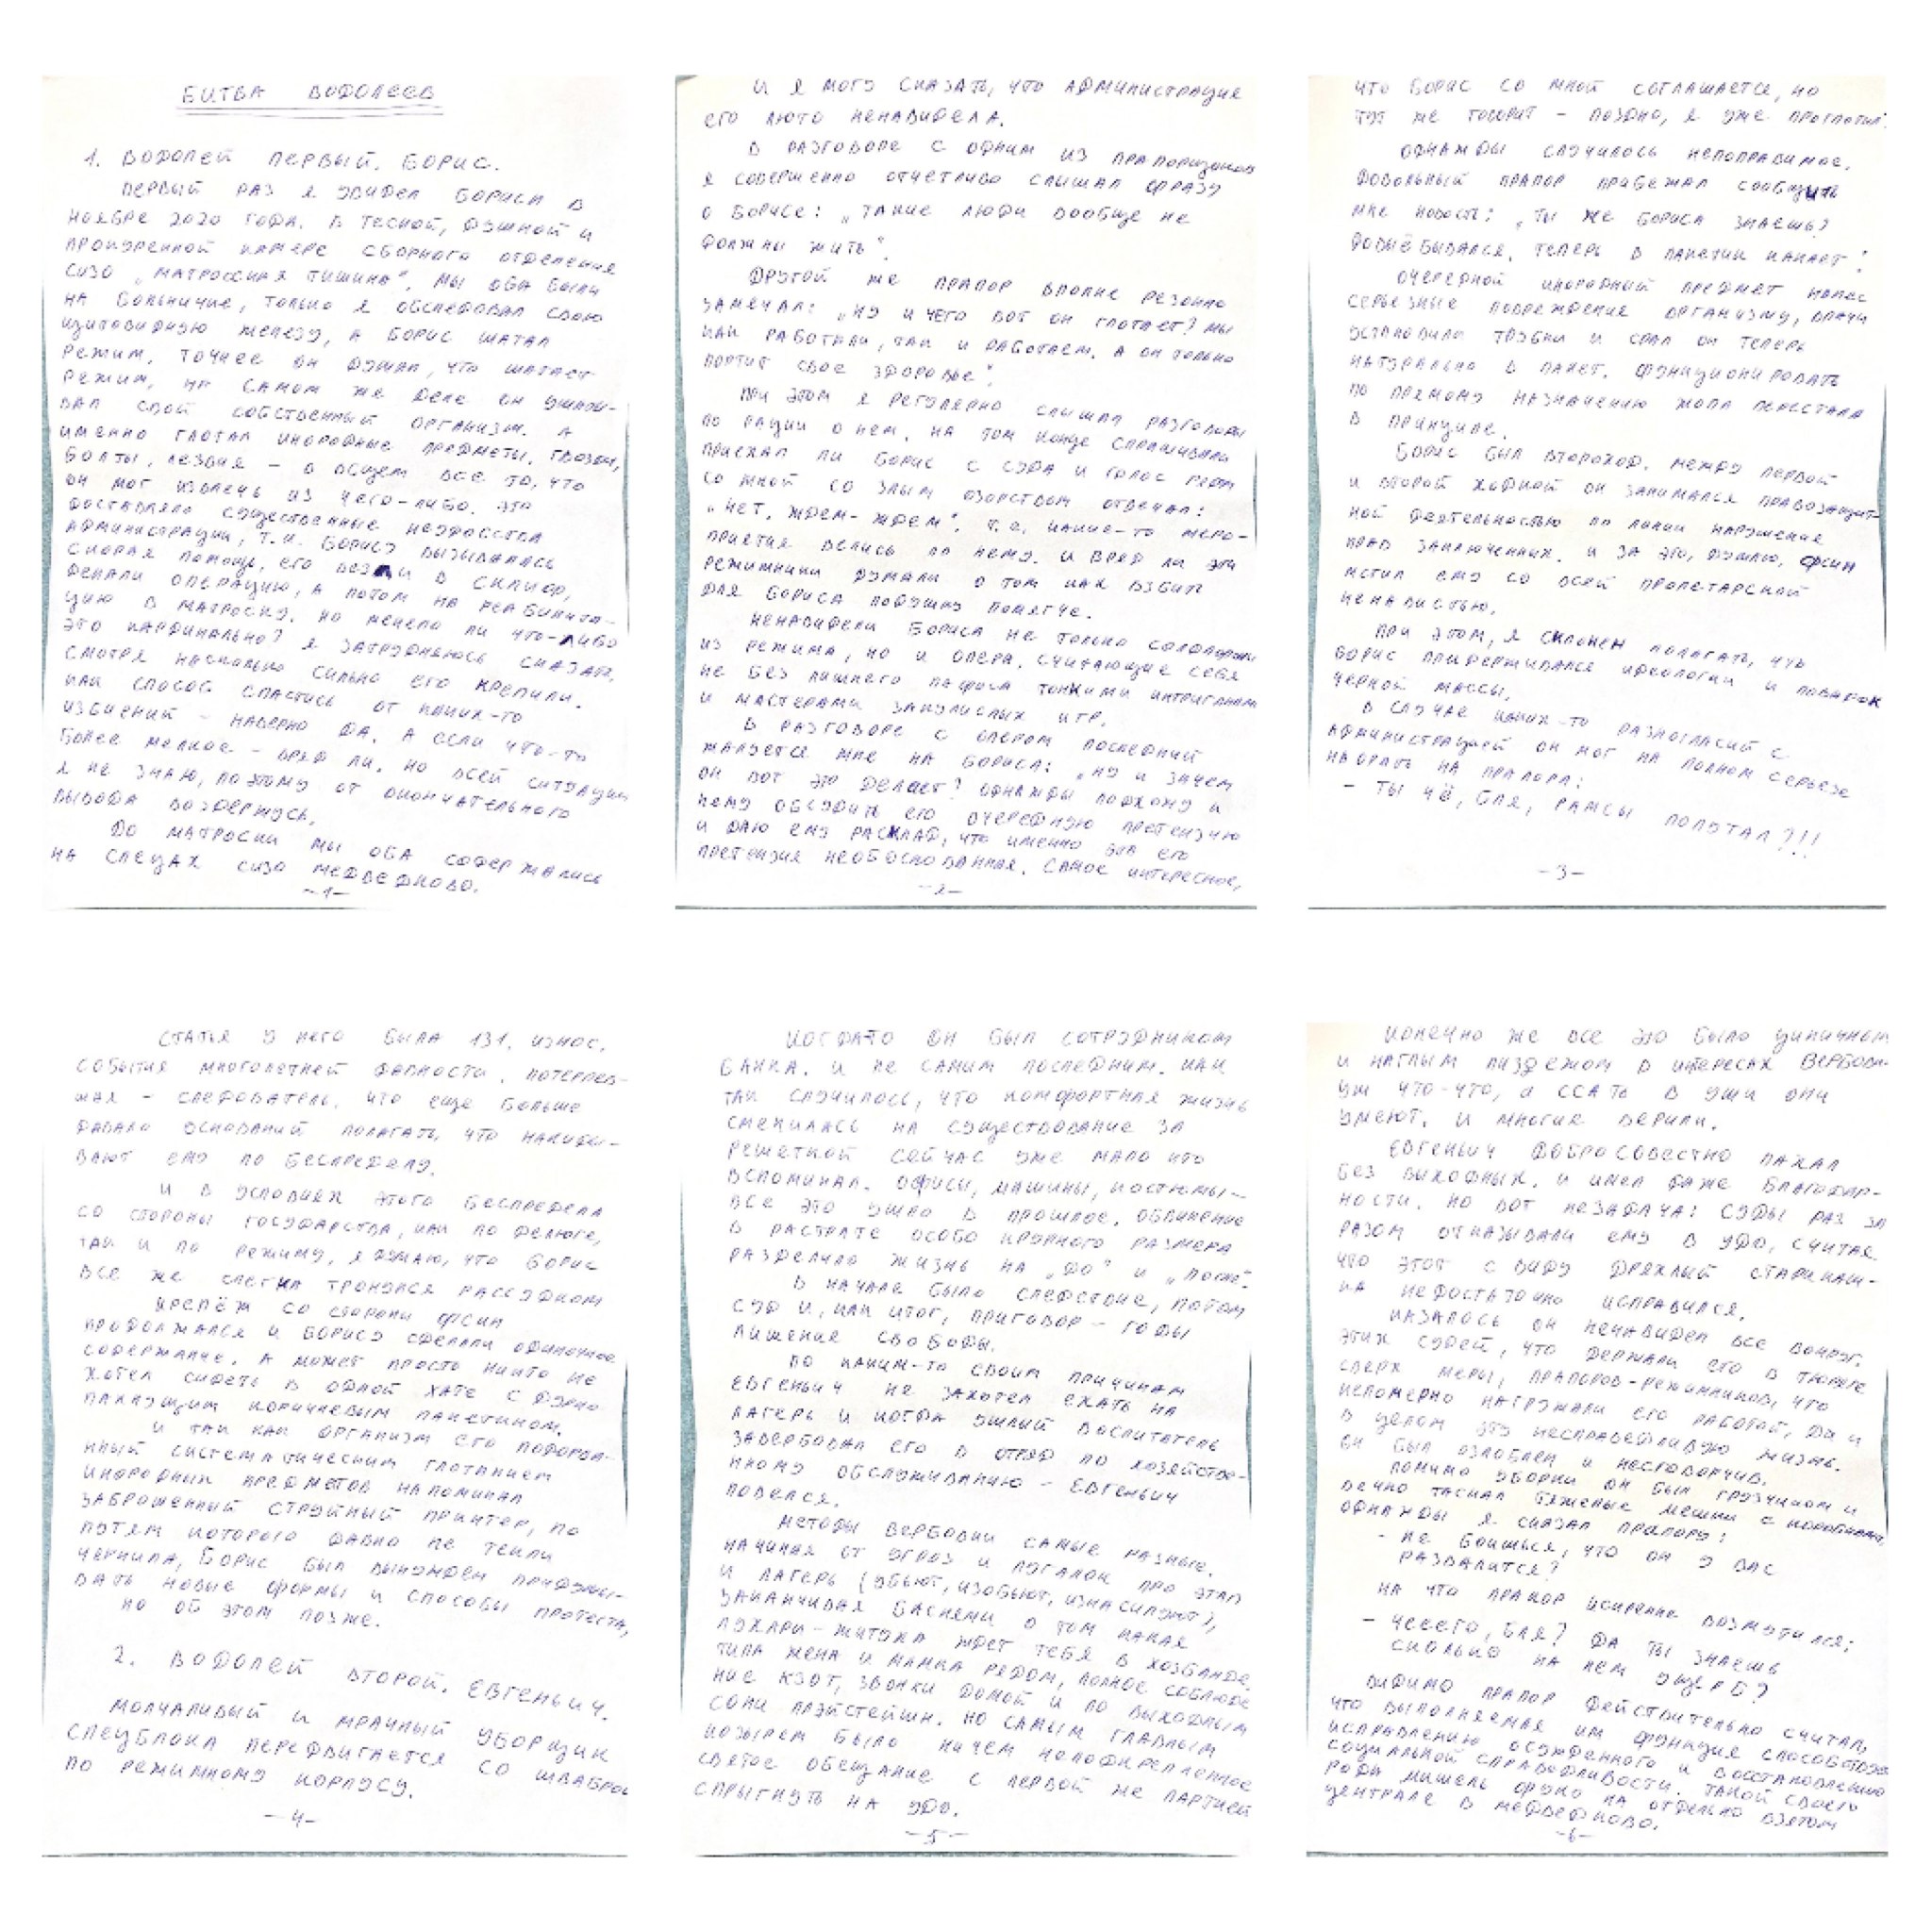 БИТВА ВОДОЛЕЕВ
1. ВОДОЛЕЙ ПЕРВЫЙ. БОРИС.
ПЕРВЫЙ РАЗ Я УВИДЕЛ БОРИСА В
НОЯБРЕ 2020 ГОДА. В ТЕСНОЙ, ДУШНОЙ И
ПРОКУРЕННОЙ КАМЕРЕ СБОРНОГО ОТДЕЛЕНИЯ
СИЗО „МАТРОССКАЯ ТИШИНА". МЫ ОБА БЫЛИ
НА БОЛЬНИЧКЕ, ТОЛЬКО Я ОБСЛЕДОВАЛ СВОЮ
ЩИТОВИДНУЮ ЖЕЛЕЗУ, А БОРИС ШАТАЛ
РЕЖИМ, ТОЧНЕЕ ОН ДУМАЛ, ЧТО ШАТАЕТ
РЕЖИМ, НА САМОМ ЖЕ ДЕЛЕ ОН УШАТЫ-
ВАЛ СВОЙ СОБСТВЕННЫЙ ОРГАНИЗМ. А
ИМЕННО ГЛОТАЛ ИНОРОДНЫЕ ПРЕДМЕТЫ. ГВОЗДИ,
БОЛТЫ, ЛЕЗВИЯ – В ОБЩЕМ ВСЕ ТО, ЧТО
ОН МОГ ИЗВЛЕЧЬ ИЗ ЧЕГО-ЛИБО. ЭТО
ДОСТАВЛЯЛО СУЩЕСТВЕННЫЕ НЕУДОБСТВА
АДМИНИСТРАЦИИ, Т.К. БОРИСУ ВЫЗЫВАЛАСЬ
СКОРАЯ ПОМОЩЬ, ЕГО ВЕЗЛИ В СКЛИФ,
ДЕЛАЛИ ОПЕРАЦИЮ, А ПОТОМ НА РЕАБИЛИТА-
ЦИЮ В МАТРОСКУ. НО МЕНЯЛО ЛИ ЧТО-ЛИБО
ЭТО КАРДИНАЛЬНО? Я ЗАТРУДНЯЮСЬ СКАЗАТЬ,
СМОТРЯ НАСКОЛЬКО СИЛЬНО ЕГО КРЕПИЛИ.
КАК СПОСОБ СПАСТИСЬ ОТ КАКИХ-ТО
ИЗБИЕНИЙ – НАВЕРНО ДА. А ЕСЛИ ЧТО-ТО
БОЛЕЕ МЕЛКОЕ – ВРЯД ЛИ. НО ВСЕЙ СИТУАЦИИ
Я НЕ ЗНАЮ, ПОЭТОМУ ОТ ОКОНЧАТЕЛЬНОГО
ВЫВОДА ВОЗДЕРЖУСЬ.
ДО МАТРОСКИ МЫ ОБА СОДЕРЖАЛИСЬ
НА СПЕЦАХ СИЗО МЕДВЕДКОВО.
–1–
И Я МОГУ СКАЗАТЬ, ЧТО АДМИНИСТРАЦИЯ
ЕГО ЛЮТО НЕНАВИДЕЛА.
В РАЗГОВОРЕ С ОДНИМ ИЗ ПРАПОРЩИКОВ
Я СОВЕРШЕННО ОТЧЕТЛИВО СЛЫШАЛ ФРАЗУ
О БОРИСЕ: „ТАКИЕ ЛЮДИ ВООБЩЕ НЕ
ДОЛЖНЫ ЖИТЬ".
ДРУГОЙ ЖЕ ПРАПОР ВПОЛНЕ РЕЗОННО
ЗАМЕЧАЛ: „НУ И ЧЕГО ВОТ ОН ГЛОТАЕТ? МЫ
КАК РАБОТАЛИ, ТАК И РАБОТАЕМ. А ОН ТОЛЬКО
ПОРТИТ СВОЕ ЗДОРОВЬЕ".
ПРИ ЭТОМ Я РЕГУЛЯРНО СЛЫШАЛ РАЗГОВОРЫ
ПО РАЦИИ О НЕМ. НА ТОМ КОНЦЕ СПРАШИВАЛИ
ПРИЕХАЛ ЛИ БОРИС С СУДА И ГОЛОС РЯДОМ
СО МНОЙ СО ЗЛЫМ ОЗОРСТВОМ ОТВЕЧАЛ:
„НЕТ, ЖДЕМ-ЖДЕМ". Т.Е. КАКИЕ-ТО МЕРО-
ПРИЯТИЯ ВЕЛИСЬ ПО НЕМУ. И ВРЯД ЛИ ЭТИ
РЕЖИМНИКИ ДУМАЛИ О ТОМ КАК ВЗБИТЬ
ДЛЯ БОРИСА ПОДУШКУ ПОМЯГЧЕ.
НЕНАВИДЕЛИ БОРИСА НЕ ТОЛЬКО СОЛДАФОНЫ
ИЗ РЕЖИМА, НО И ОПЕРА, СЧИТАЮЩИЕ СЕБЯ
НЕ БЕЗ ЛИШНЕГО ПАФОСА ТОНКИМИ ИНТРИГАНАМИ
И МАСТЕРАМИ ЗАКУЛИСНЫХ ИГР.
В РАЗГОВОРЕ С ОПЕРОМ ПОСЛЕДНИЙ
ЖАЛУЕТСЯ МНЕ НА БОРИСА: „НУ И ЗАЧЕМ
ОН ВОТ ЭТО ДЕЛАЕТ? ОДНАЖДЫ ПОДХОЖУ К
НЕМУ ОБСУДИТЬ ЕГО ОЧЕРЕДНУЮ ПРЕТЕНЗИЮ
И ДАЮ ЕМУ РАСКЛАД, ЧТО ИМЕННО ЭТА ЕГО
ПРЕТЕНЗИЯ НЕОБОСНОВАННАЯ. САМОЕ ИНТЕРЕСНОЕ,
–2–
ЧТО БОРИС СО МНОЙ СОГЛАШАЕТСЯ, НО
ТУТ ЖЕ ГОВОРИТ – ПОЗДНО, Я УЖЕ ПРОГЛОТИЛ".
ОДНАЖДЫ СЛУЧИЛОСЬ НЕПОПРАВИМОЕ.
ДОВОЛЬНЫЙ ПРАПОР ПРИБЕЖАЛ СООБЩИТЬ
МНЕ НОВОСТЬ: „ТЫ ЖЕ БОРИСА ЗНАЕШЬ?
ДОВЫЁБЫВАЛСЯ. ТЕПЕРЬ В ПАКЕТИК КАКАЕТ".
ОЧЕРЕДНОЙ ИНОРОДНЫЙ ПРЕДМЕТ НАНЕС
СЕРЬЕЗНЫЕ ПОВРЕЖДЕНИЯ ОРГАНИЗМУ, ВРАЧИ
УСТАНОВИЛИ ТРУБКИ И СРАЛ ОН ТЕПЕРЬ
НАТУРАЛЬНО В ПАКЕТ. ФУНКЦИОНИРОВАТЬ
ПО ПРЯМОМУ НАЗНАЧЕНИЮ ЖОПА ПЕРЕСТАЛА
В ПРИНЦИПЕ.
БОРИС БЫЛ ВТОРОХОД. МЕЖДУ ПЕРВОЙ
И ВТОРОЙ ХОДКОЙ ОН ЗАНИМАЛСЯ ПРАВОЗАЩИТ-
НОЙ ДЕЯТЕЛЬНОСТЬЮ ПО ЛИНИИ НАРУШЕНИЯ
ПРАВ ЗАКЛЮЧЕННЫХ. И ЗА ЭТО, ДУМАЮ, ФСИН
МСТИЛ ЕМУ СО ВСЕЙ ПРОЛЕТАРСКОЙ
НЕНАВИСТЬЮ.
ПРИ ЭТОМ, Я СКЛОНЕН ПОЛАГАТЬ, ЧТО
БОРИС ПРИДЕРЖИВАЛСЯ ИДЕОЛОГИИ И ПОВАДОК
ЧЕРНОЙ МАССЫ.
В СЛУЧАЕ КАКИХ-ТО РАЗНОГЛАСИЙ С
АДМИНИСТРАЦИЕЙ ОН МОГ НА ПОЛНОМ СЕРЬЕЗЕ
НАОРАТЬ НА ПРАПОРА:
– ТЫ ЧЁ, БЛЯ, РАМСЫ ПОПУТАЛ?!!
–3–
СТАТЬЯ У НЕГО БЫЛА 131. ИЗНОС.
СОБЫТИЯ МНОГОЛЕТНЕЙ ДАВНОСТИ. ПОТЕРПЕВ-
ШАЯ – СЛЕДОВАТЕЛЬ. ЧТО ЕЩЕ БОЛЬШЕ
ДАВАЛО ОСНОВАНИЙ ПОЛАГАТЬ, ЧТО НАКИДЫ-
ВАЮТ ЕМУ ПО БЕСПРЕДЕЛУ.
И В УСЛОВИЯХ ЭТОГО БЕСПРЕДЕЛА
СО СТОРОНЫ ГОСУДАРСТВА, КАК ПО ДЕЛЮГЕ,
ТАК И ПО РЕЖИМУ, Я ДУМАЮ, ЧТО БОРИС
ВСЕ ЖЕ СЛЕГКА ТРОНУЛСЯ РАССУДКОМ
КРЕПЁЖ СО СТОРОНЫ ФСИН
ПРОДОЛЖАЛСЯ И БОРИСУ СДЕЛАЛИ ОДИНОЧНОЕ
СОДЕРЖАНИЕ. А МОЖЕТ ПРОСТО НИКТО НЕ
ХОТЕЛ СИДЕТЬ В ОДНОЙ ХАТЕ С ДУРНО
ПАХНУЩИМ КОРИЧНЕВЫМ ПАКЕТИКОМ.
И ТАК КАК ОРГАНИЗМ ЕГО ПОДОРВАН-
ННЫЙ СИСТЕМАТИЧЕСКИМ ГЛОТАНИЕМ
ИНОРОДНЫХ ПРЕДМЕТОВ НАПОМИНАЛ
ЗАБРОШЕННЫЙ СТРУЙНЫЙ ПРИНТЕР, ПО
ПУТЯМ КОТОРОГО ДАВНО НЕ ТЕКЛИ
ЧЕРНИЛА, БОРИС БЫЛ ВЫНУЖДЕН ПРИДУМЫ-
ВАТЬ НОВЫЕ ФОРМЫ И СПОСОБЫ ПРОТЕСТА,
НО ОБ ЭТОМ ПОЗЖЕ.
2. ВОДОЛЕЙ ВТОРОЙ. ЕВГЕНЬИЧ.
МОЛЧАЛИВЫЙ И МРАЧНЫЙ УБОРЩИК
СПЕЦБЛОКА ПЕРЕДВИГАЕТСЯ СО ШВАБРОЙ
ПО РЕЖИМНОМУ КОРПУСУ.
–4–
КОГДАТО ОН БЫЛ СОТРУДНИКОМ
БАНКА. И НЕ САМИМ ПОСЛЕДНИМ. КАК
ТАК СЛУЧИЛОСЬ, ЧТО КОМФОРТНАЯ ЖИЗНЬ
СМЕНИЛАСЬ НА СУЩЕСТВОВАНИЕ ЗА
РЕШЕТКОЙ СЕЙЧАС УЖЕ МАЛО КТО
ВСПОМИНАЛ. ОФИСЫ, МАШИНЫ, КОСТЮМЫ –
ВСЕ ЭТО УШЛО В ПРОШЛОЕ. ОБВИНЕНИЕ
В РАСТРАТЕ ОСОБО КРУПНОГО РАЗМЕРА
РАЗДЕЛИЛО ЖИЗНЬ НА „ДО" И „ПОСЛЕ".
В НАЧАЛЕ БЫЛО СЛЕДСТВИЕ, ПОТОМ
СУД И, КАК ИТОГ, ПРИГОВОР – ГОДЫ
ЛИШЕНИЯ СВОБОДЫ.
ПО КАКИМ-ТО СВОИМ ПРИЧИНАМ
ЕВГЕНЬИЧ НЕ ЗАХОТЕЛ ЕХАТЬ НА
ЛАГЕРЬ И КОГДА УШЛЫЙ ВОСПИТАТЕЛЬ
ЗАВЕРБОВАЛ ЕГО В ОТРЯД ПО ХОЗЯЙСТВЕ-
ННОМУ ОБСЛУЖИВАНИЮ – ЕВГЕНЬИЧ
ПОВЕЛСЯ.
МЕТОДЫ ВЕРБОВКИ САМЫЕ РАЗНЫЕ.
НАЧИНАЯ ОТ УГРОЗ И ПУГАЛОК ПРО ЭТАП
И ЛАГЕРЬ (УБЬЮТ, ИЗОБЬЮТ, ИЗНАСИЛУЮТ),
ЗАКАНЧИВАЯ БАСНЯМИ О ТОМ КАКАЯ
ЛУХАРИ-ЖИТУХА ЖДЕТ ТЕБЯ В ХОЗБАНДЕ.
ТИПА ЖЕНА И МАМКА РЯДОМ, ПОЛНОЕ СОБЛЮДЕ
НИЕ КЗОТ, ЗВОНКИ ДОМОЙ И ПО ВЫХОДНЫМ
СОНИ ПЛЭЙСТЕЙШН. НО САМЫМ ГЛАВНЫМ
КОЗЫРЕМ БЫЛО НИЧЕМ НЕПОДКРЕПЛЕННОЕ
СВЯТОЕ ОБЕЩАНИЕ С ПЕРВОЙ ЖЕ ПАРТИЕЙ
СПРЫГНУТЬ НА УДО.
–5–
КОНЕЧНО ЖЕ ВСЕ ЭТО БЫЛО ЦИНИЧНЫМ
И НАГЛЫМ ПИЗДЕЖОМ В ИНТЕРЕСАХ ВЕРБОВКИ
УЖ ЧТО-ЧТО, А ССАТЬ В УШИ ОНИ
УМЕЮТ. И МНОГИЕ ВЕРИЛИ.
ЕВГЕНЬИЧ ДОБРОСОВЕСТНО ПАХАЛ
БЕЗ ВЫХОДНЫХ. И ИМЕЛ ДАЖЕ БЛАГОДАР-
НОСТИ. НО ВОТ НЕЗАДАЧА: СУДЫ РАЗ ЗА
РАЗОМ ОТКАЗЫВАЛИ ЕМУ В УДО, СЧИТАЯ
ЧТО ЭТОТ С ВИДУ ДРЯХЛЫЙ СТАРИКАШ-
КА НЕДОСТАТОЧНО ИСПРАВИЛСЯ.
КАЗАЛОСЬ ОН НЕНАВИДЕЛ ВСЕ ВОКРУГ.
ЭТИХ СУДЕЙ, ЧТО ДЕРЖАЛИ ЕГО В ТЮРЬМЕ
СВЕРХ МЕРЫ, ПРАПОРОВ-РЕЖИМНИКОВ, ЧТО
НЕПОМЕРНО НАГРУЖАЛИ ЕГО РАБОТОЙ, ДА И
В ЦЕЛОМ ЭТУ НЕСПРАВЕДЛИВУЮ ЖИЗНЬ.
ОН БЫЛ ОЗЛОБЛЕН И НЕСГОВОРЧИВ.
ПОМИМО УБОРКИ ОН БЫЛ ГРУЗЧИКОМ И
ВЕЧНО ТАСКАЛ ТЯЖЕЛЫЕ МЕШКИ С КОРОБКАМИ,
ОДНАЖДЫ Я СКАЗАЛ ПРАПОРУ:
– НЕ БОИШЬСЯ, ЧТО ОН У ВАС
РАЗВАЛИТСЯ?
НА ЧТО ПРАПОР ИСКРЕННЕ ВОЗМУТИЛСЯ:
– ЧЕЕЕГО, БЛЯ? ДА ТЫ ЗНАЕШЬ
СКОЛЬКО НА НЕМ УЩЕРБ?
ВИДИМО ПРАПОР ДЕЙСТВИТЕЛЬНО СЧИТАЛ,
ЧТО ВЫПОЛНЯЕМАЯ ИМ ФУНКЦИЯ СПОСОБСТВУЕТ
ИСПРАВЛЕНИЮ ОСУЖДЕННОГО И ВОССТАНОВЛЕНИЮ
СОЦИАЛЬНОЙ СПРАВЕДЛИВОСТИ. ТАКОЙ СВОЕГО
РОДА МИШЕЛЬ ФУКО НА ОТДЕЛЬНО ВЗЯТОМ
ЦЕНТРАЛЕ В МЕДВЕДКОВО.
–6–